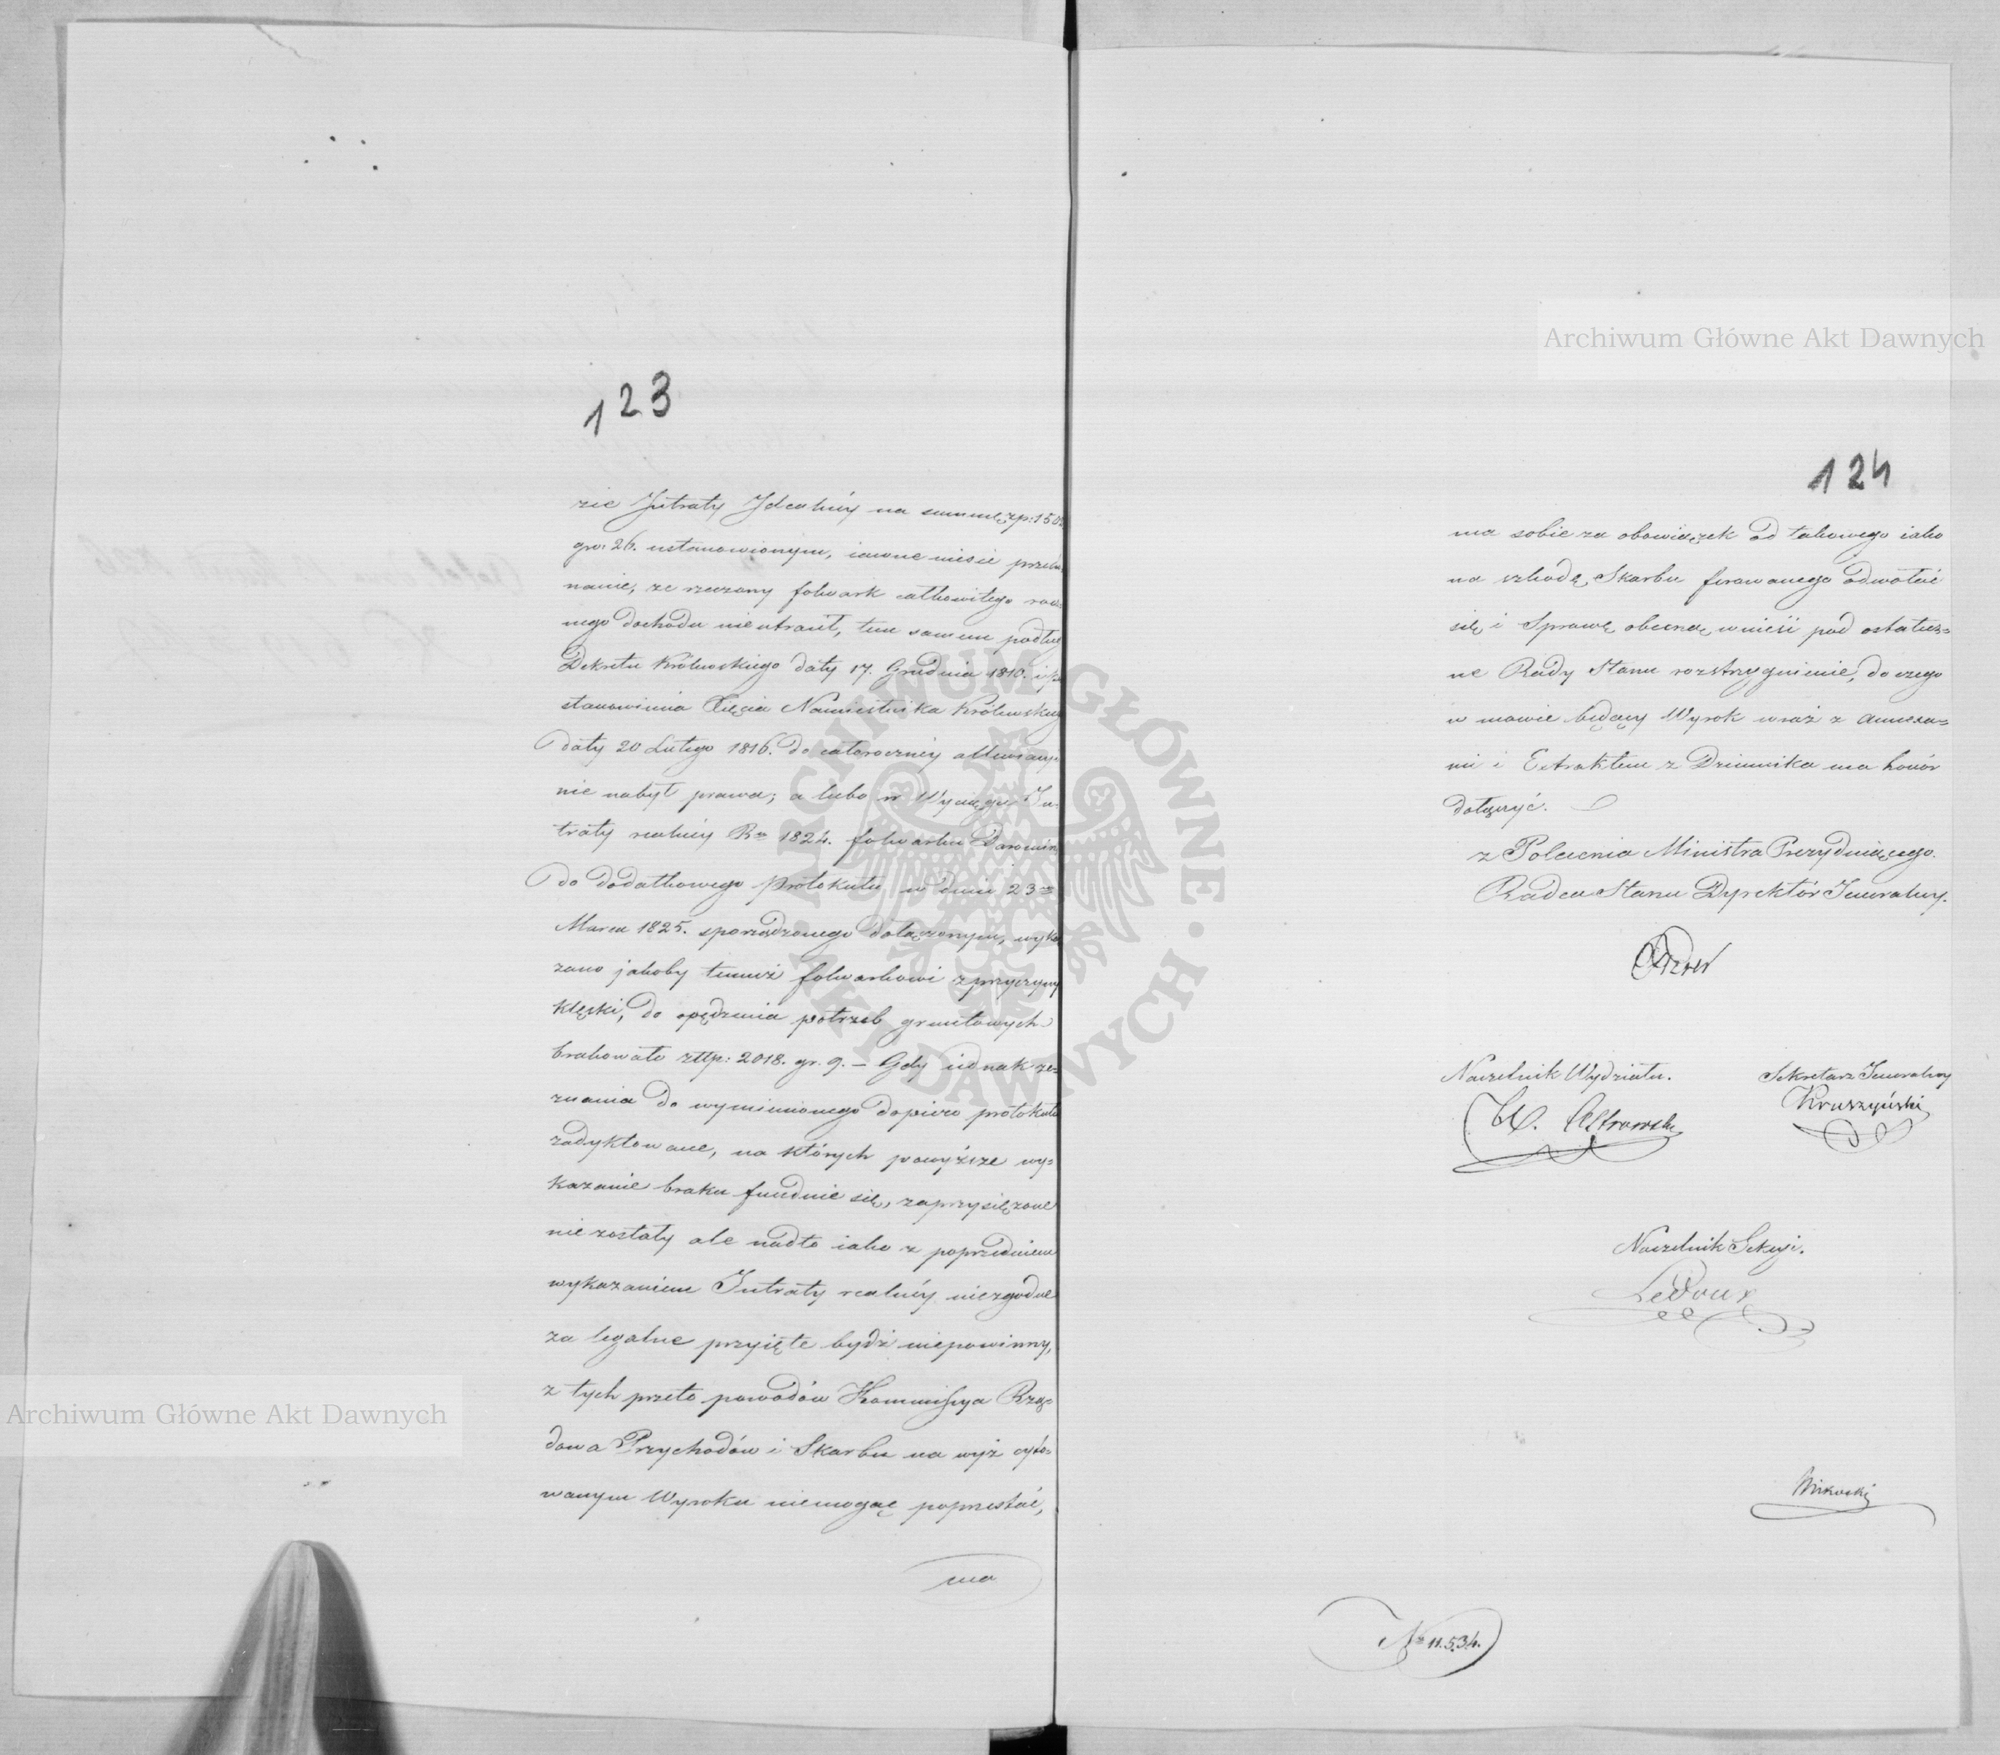 123
zie Jntraty Jdealnéy na summę zp: 150
gr: 26. ustanowionym, iawne niesie przeko-
nanie, ze rzeczony folwark całkowitego rocz-
nego dochodu nieutracił, tem samem podług
Dekretu Królewskiego daty 17. Grudnia 1810. i po
stanowienia Xięcia Namiestnika Królewskiego
daty 20 Lutego 1816. do całorocznéy allewiacyi
nie nabył prawa; a lubo w Wyciągu Jn-
traty realnéy Ru 1824. folwarku
do dodatkowego protokułu w dniu 23
Marca 1825. sporządzonego dołączonym, wyka
zano jakoby temuż folwarkowi z przyczyny
klęski, do opędzenia potrzeb gruntowych
brakowało złtp: 2018. gr. 9. – Gdy iednak ze-
znania do wymienionego dopiero protokułu
zadyktowane, na których powyższe wy-
kazanie braku funduie się, zaprzysiężone
nie zostały ale nadto iako z poprzedniem
wykazaniem Jntraty realnéy niezgodne
za legalne przyięte bydź niepowinny,
z tych przeto powodów Kommissya Rzą-
dowa Przychodów i Skarbu na wyż cyto-
wanym Wyroku niemogąc poprzestać,
ma
124
ma sobie za obowiązek od takowego iako
na szkodę Skarbu ferowanego odwołać
się i Sprawę obecną wnieść pod ostatecz-
ne Rady Stanu rozstrzygnienie, do czego
w mowie będący Wyrok wraz z annexa-
mi i Extraktem z Dziennika ma honor
dołączyć.
z Polecenia Ministra Prezyduiącego.
Radca Stanu Dyrektór Jeneralny.
Naczelnik Wydziału.
Sekretarz Jeneralny
Kruszyński
Naczelnik Sekcyi.
LeDoux
No 11.534.
Archiwum Główne Akt Dawnych
Archiwum Główne Akt Dawnych
ARCHIWUM GŁÓWNE AKT DAWNYCH